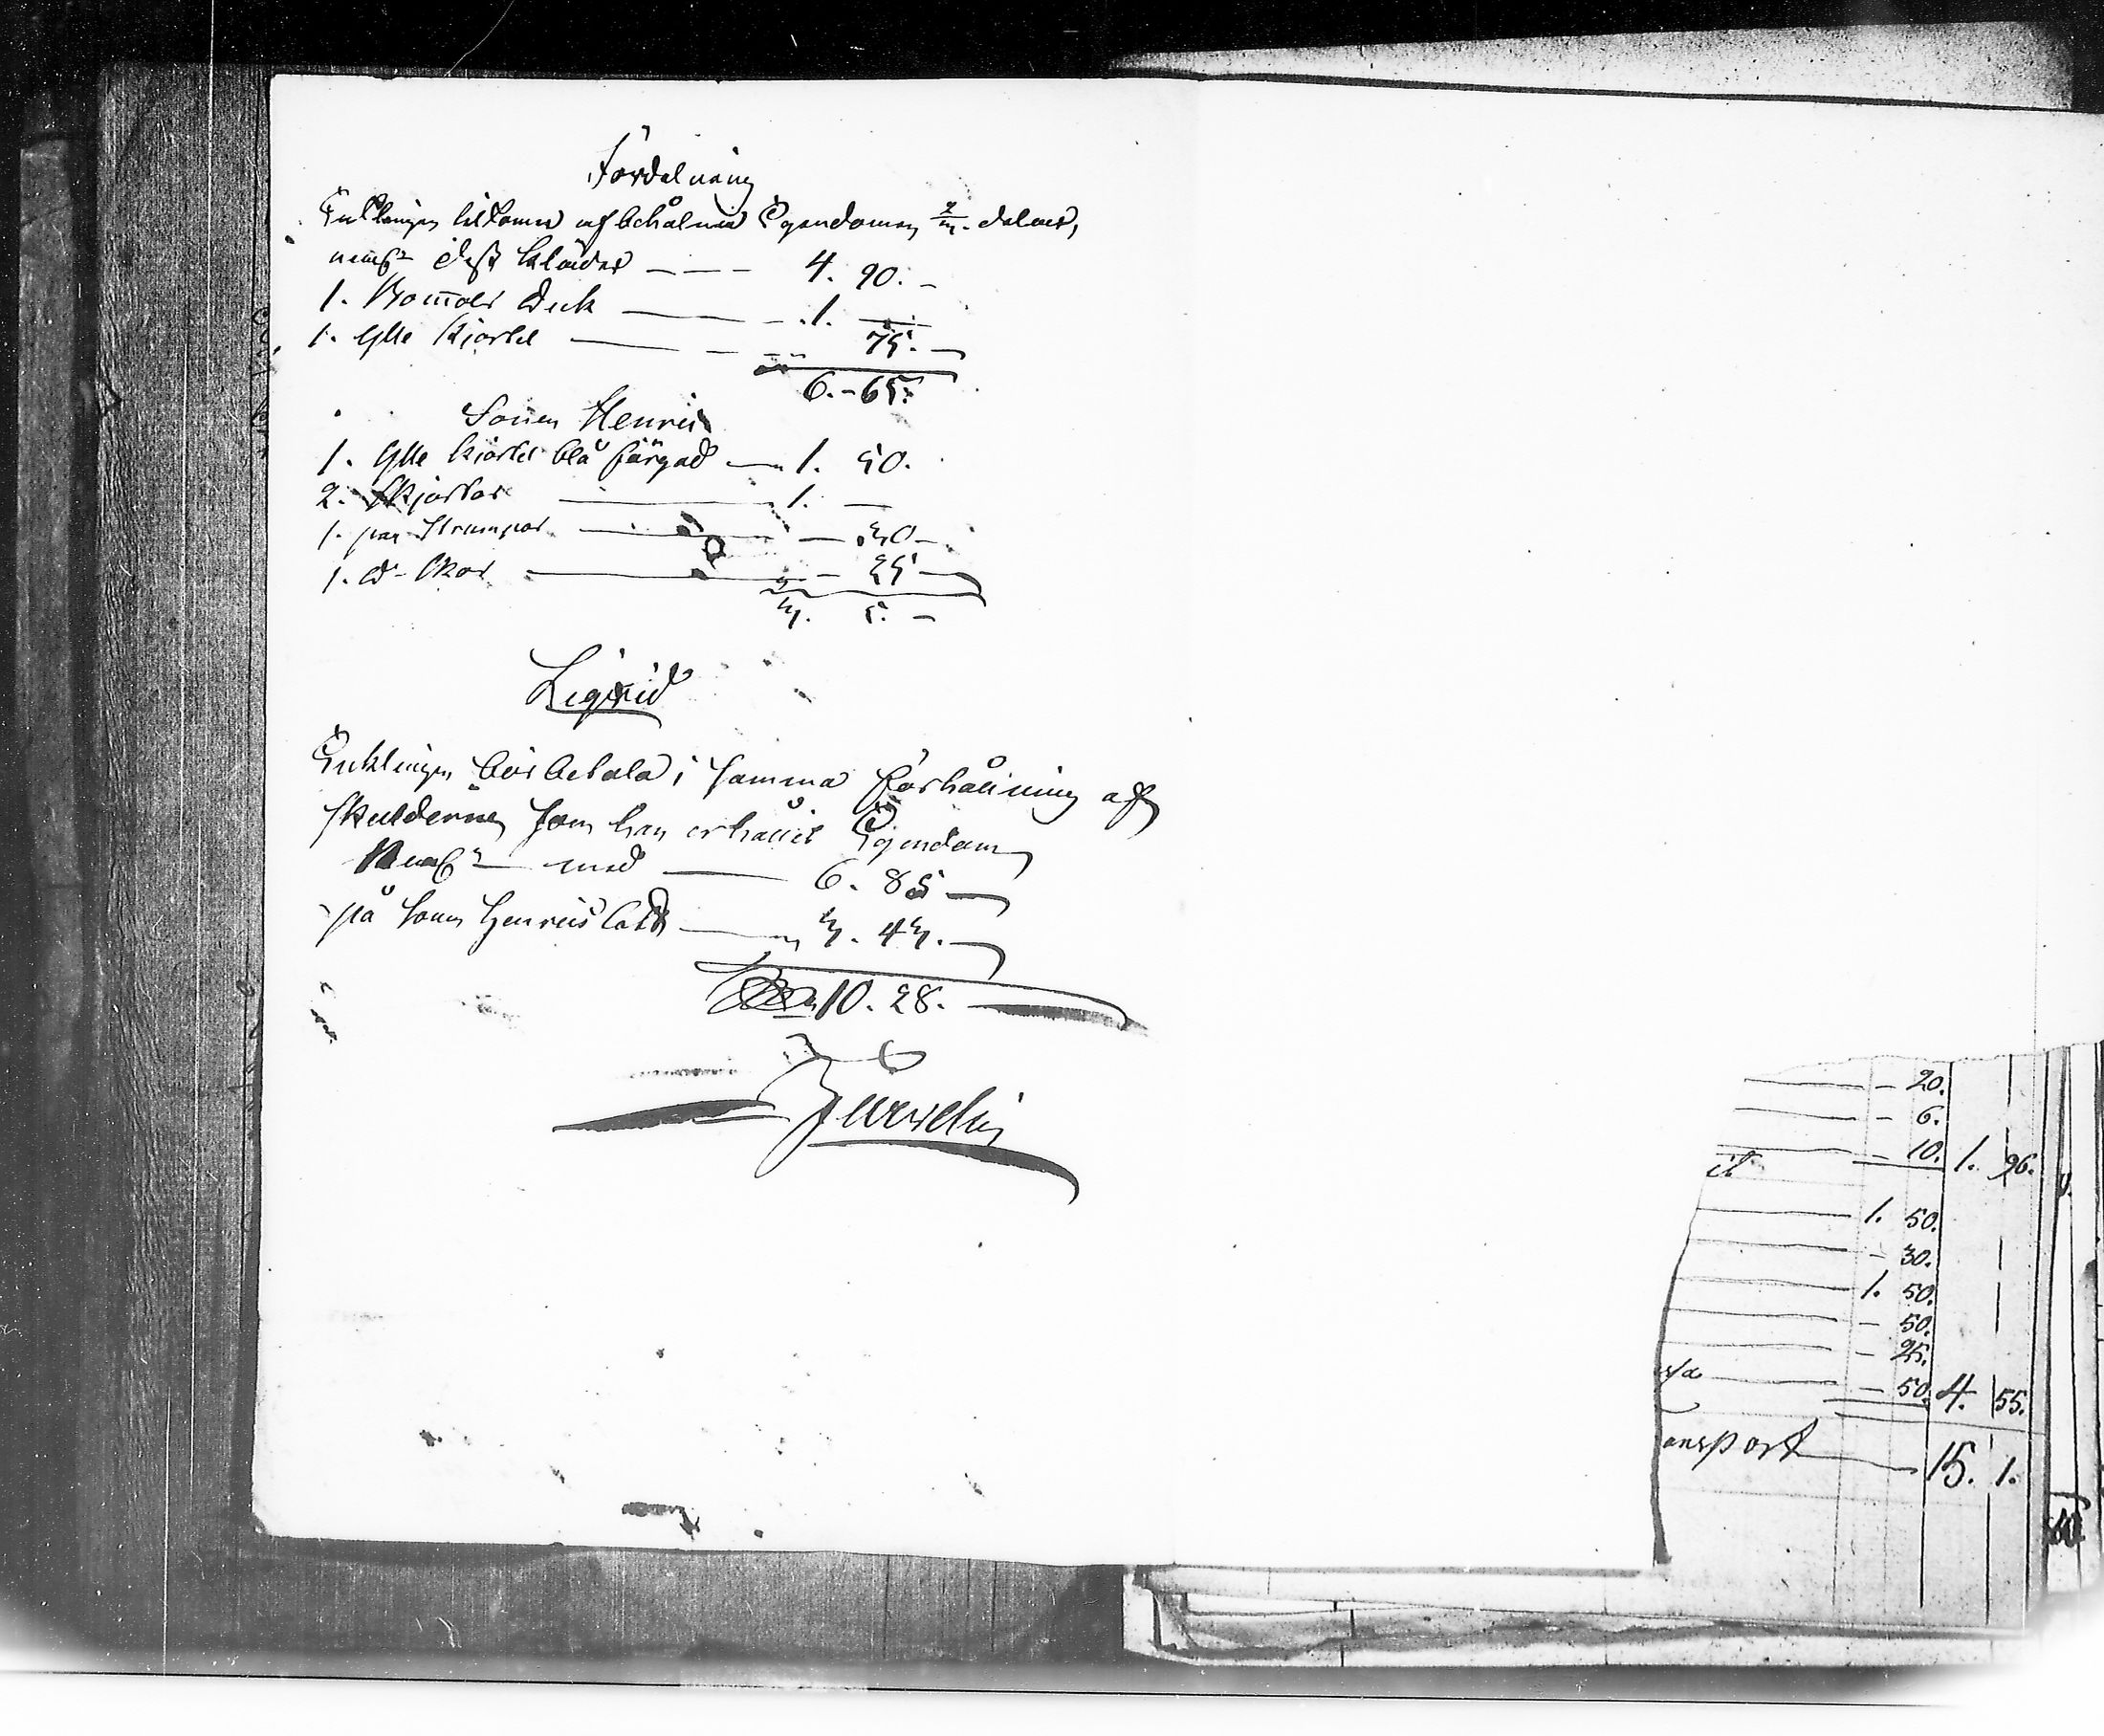 Fördelning
Enklingen tilkomer af behålna Egendomen 2/3 delar,
neml dess kläder 4. 90. -
1. Bomols Duk 1. -
1. Ylle Kjortel 75. -
6. - 65.
Sonen Henric
1. Ylle kjortel blå färgad 1. 50.
2. Skjortor 1. -
1. par Strumpor - 30 -
1. d:o Skor - 25 -
3. 5. -
Liqvid
Enklingen bör betala i samma förhållning af
skulderne som han erhållit Egendom
neml med 6. 85 -
på sonen Henrics lott 3. 43. -
10. 28.
- 20.
- 6.
- 10. 1. 96.
1. 50.
- 30.
1. 50.
- 50.
- 25.
- 50. 4. 55.
ansport 15. 1.